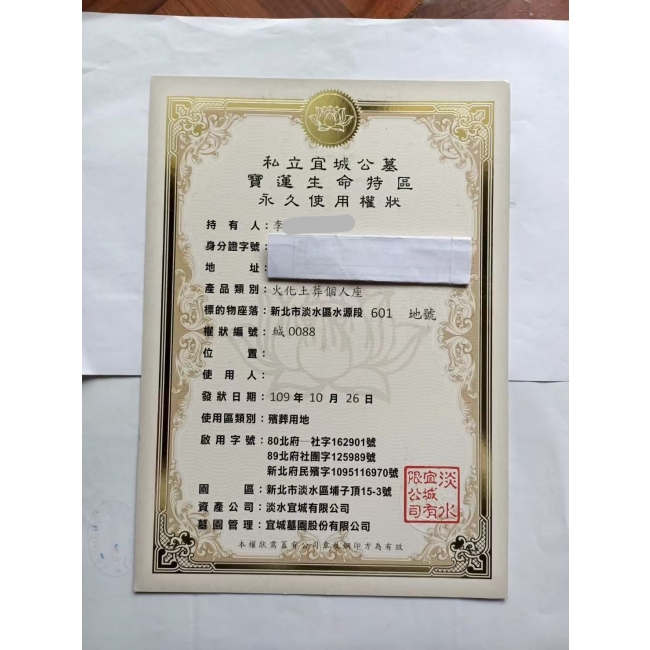 私立宜城公墓
寶蓮生命特區
永久使用權狀
持有人：李
身分證字號：
地址：
產品類別：火化土葬個人座
標的物座落：新北市淡水區水源段 601 地號
權狀編號：城0088
位置：
使用人：
發狀日期：109 年 10 月 26 日
使用區類別：殯葬用地
啟用字號：80北府一社字162901號
89北府社團字125989號
新北府民殯字1095116970號
園區：新北市淡水區埔子頂15-3號
資產公司：淡水宜城有限公司
墓園管理：宜城墓園股份有限公司
本權狀需蓋有公司章及鋼印方為有效
淡水
宜城有
限公司